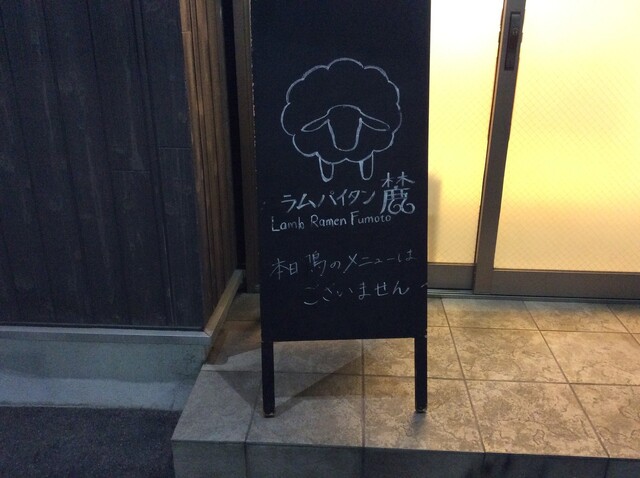 ラムパイタン 麓
Lamb Ramen Fumoto
本日 鴨のメニューは
ございません